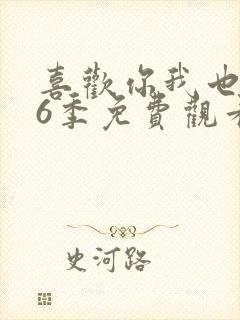 喜歡你我也
6季免費觀
史河路